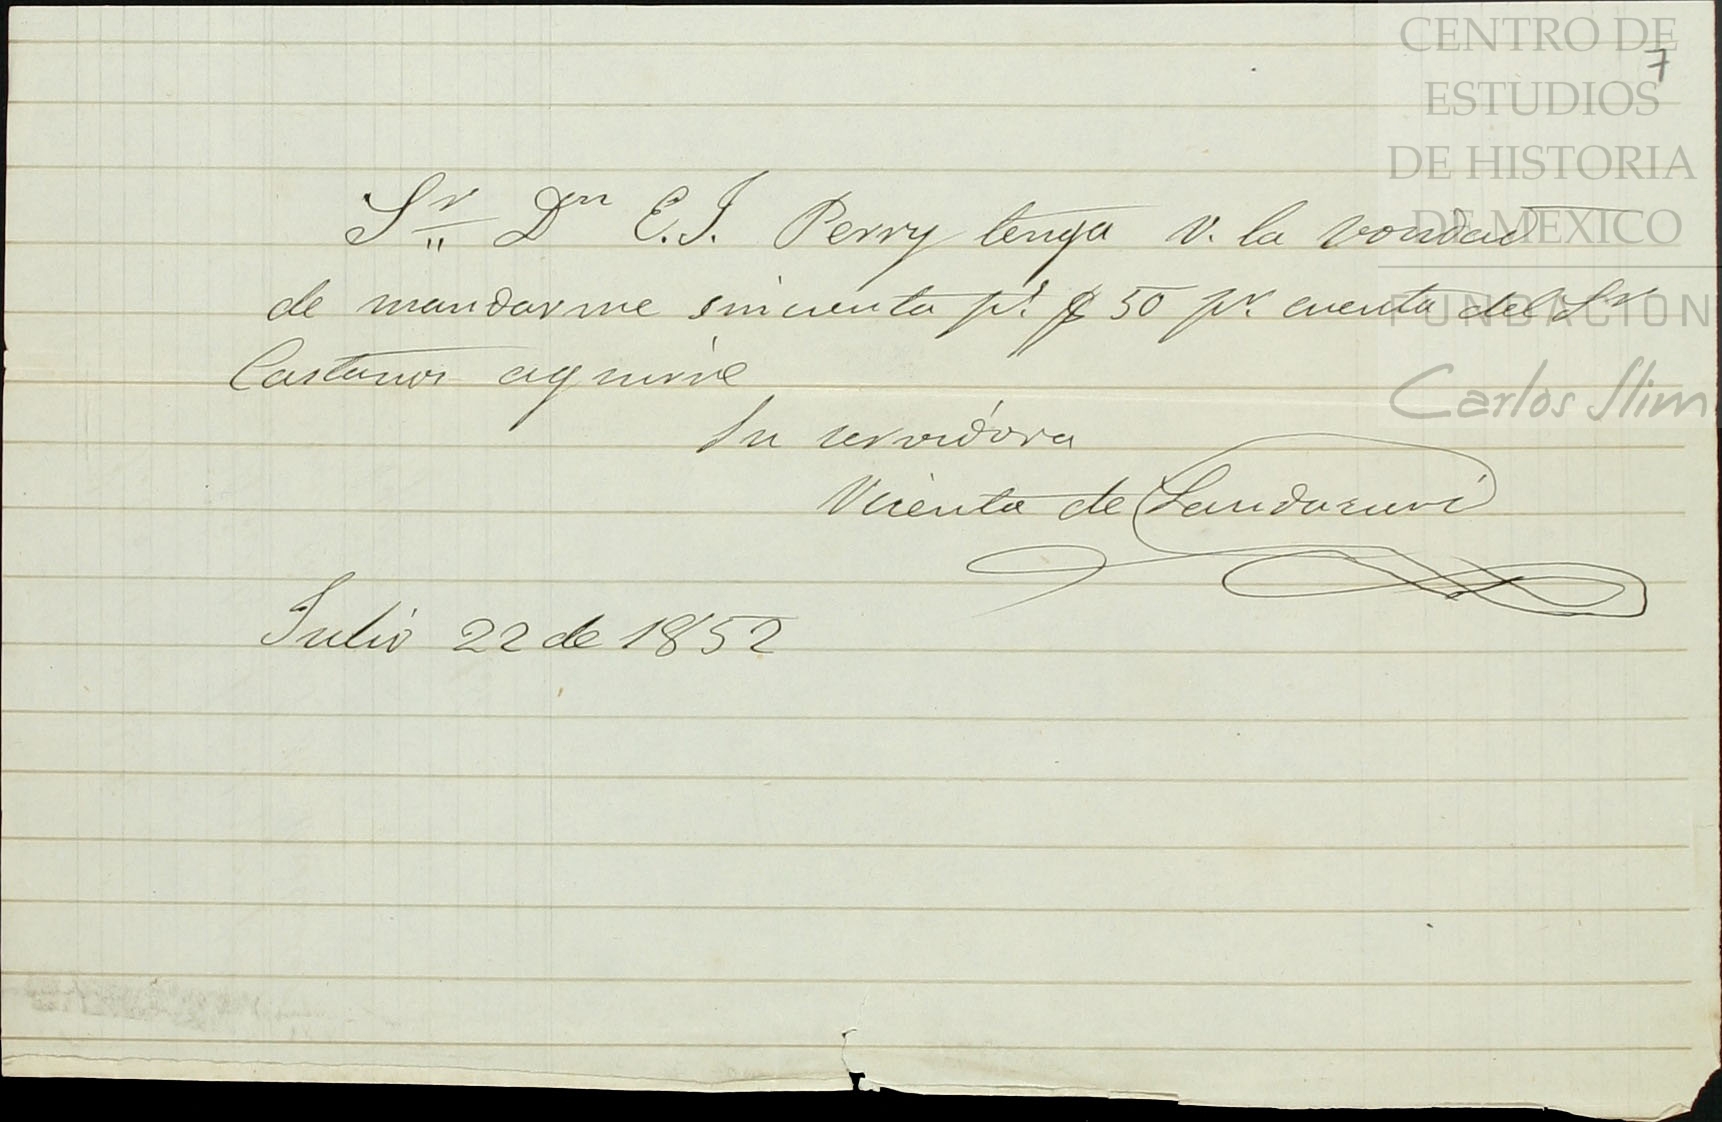 CENTRO DE
ESTUDIOS
DE HISTORIA
DE MEXICO
FUNDACION
Carlos Slim
7
Sr. Dn E. J. Perry tenga V. la vondad
de mandarme sincuenta ps. $ 50 pr. cuenta del Sr
Castaños aguirre
Su servidora
Vicenta de Landazuri
Julio 22 de 1852